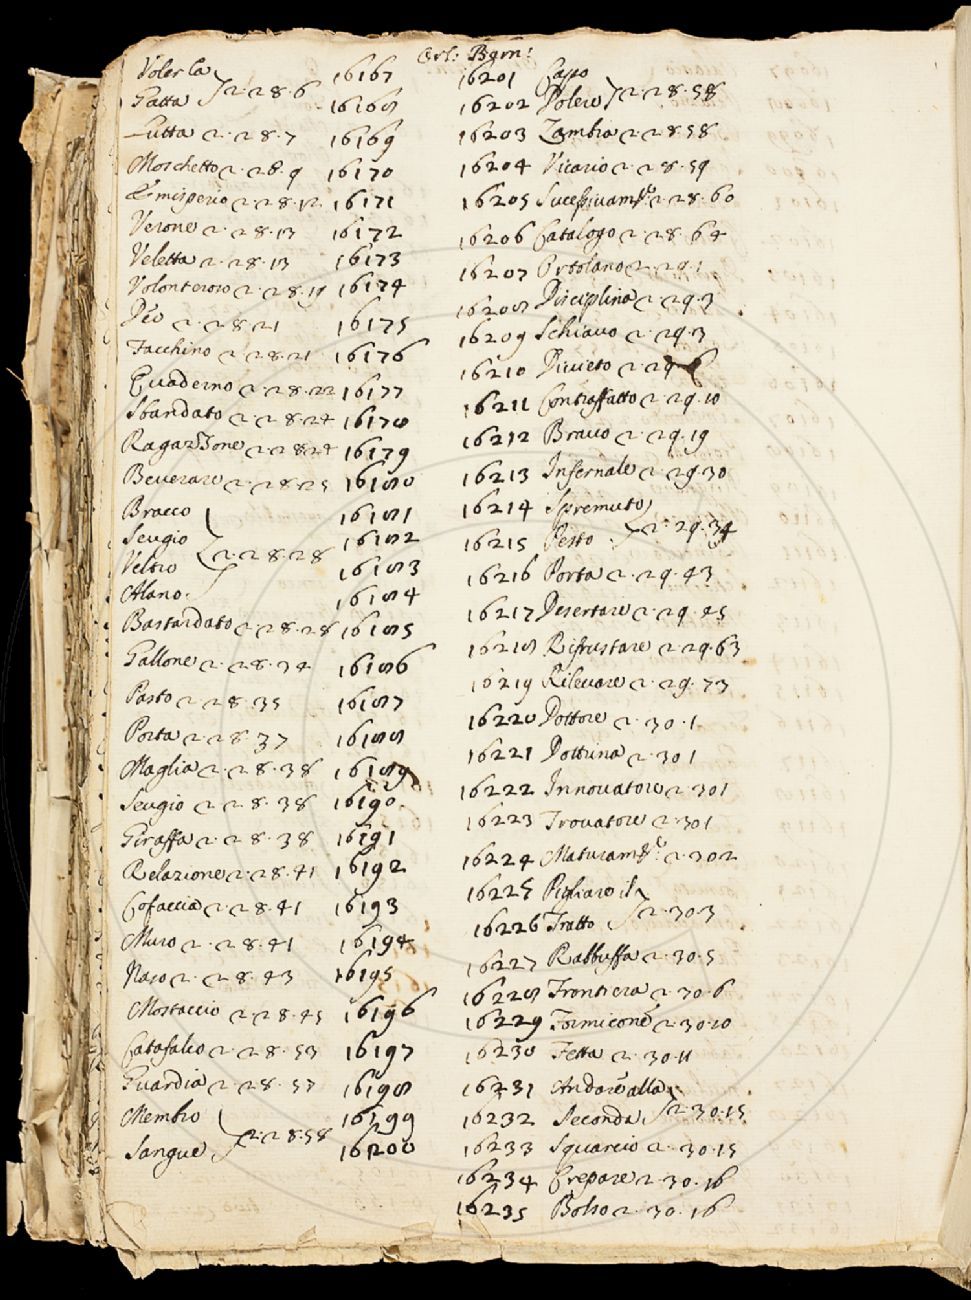 Orl: Bgrn:
Voler la
Gatta } 2.28.6 16167
16168
Lutta 2.28.7 16169
Moschetto 2.28.9 16170
Emisperio 2.28.12 16171
Verone 2.28.13 16172
Veletta 2.28.13 16173
Volonteroso 2.28.19 16174
Dio 2.28.21 16175
Facchino 2.28.21 16176
Quaderno 2.28.22 16177
Sbandato 2.28.24 16178
Ragazzone 2.28.24 16179
Beverare 2.28.25 16180
Bracco 16181
Seugio 16182
Veltro } 2.28.28 16183
Alano. 16184
Bastardato 2.28.28 16185
Gallone 2.28.34 16186
Pasto 2.28.35 16187
Porta 2.28.37 16188
Maglia 2.28.38 16189
Seugio 2.28.38 16190
Giraffa 2.28.38 16191
Relazione 2.28.41 16192
Cofaccia 2.28.41 16193
Muso 2.28.41 16194
Naso 2.28.43 16195
Mostaccio 2.28.45 16196
Catafalco 2.28.53 16197
Guardia 2.28.57 16198
Membro 16199
Sangue } 2.28.58 16200
16201 Capo
16202 Volere } 2.28.58
16203 Zambra 2.28.58
16204 Vicario 2.28.59
16205 Sucessivamte 2.28.60
16206 Catalogo 2.28.64
16207 Ortolano 2.29.1
16208 Disciplina 2.29.3
16209 Schiavo 2.29.3
16210 Divieto 2.29.6
16211 Contraffatto 2.29.10
16212 Bravo 2.29.19
16213 Infernale 2.29.30
16214 Spremuto
16215 Pesto } 2.29.34
16216 Porta 2.29.43
16217 Desertare 2.29.45
16218 Rifrustare 2.29.63
16219 Rilevare 2.29.73
16220 Dottore 2.30.1
16221 Dottrina 2.30 1
16222 Innovatore 2.301
16223 Trovatore 2.301
16224 Maturamte 2.302
16225 Pigliare il
16226 Tratto } 2.30.3
16227 Rabbuffa 2.30.5
16228 Frontiera 2.30.6
16229 Formicone 2.30.10
16230 Fetta 2.30.11
16231 Andare alla
16232 Seconda } 2.30.15
16233 Squarcio 2.30.15
16234 Crepare 2.30.16
16235 Bolso 2.30.16